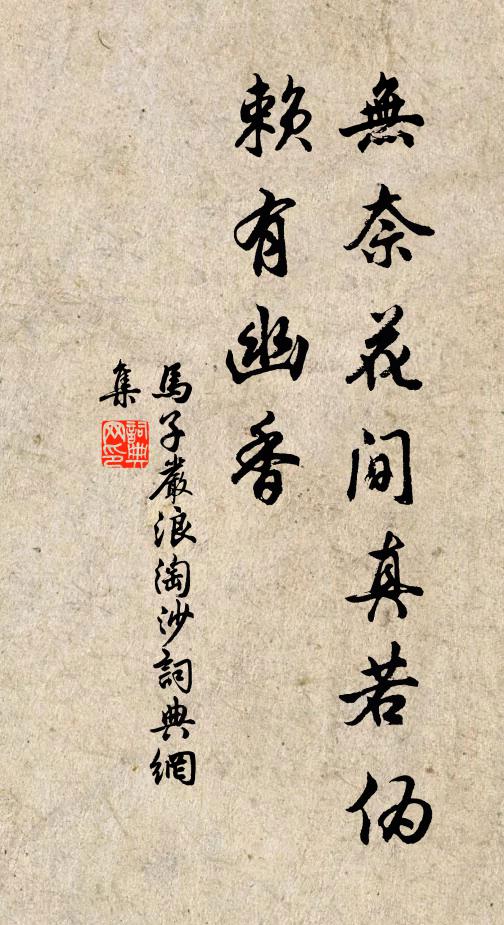 無奈花間真若伪
賴有幽香
馬子嚴浪淘沙詞典網
集
詞典网印